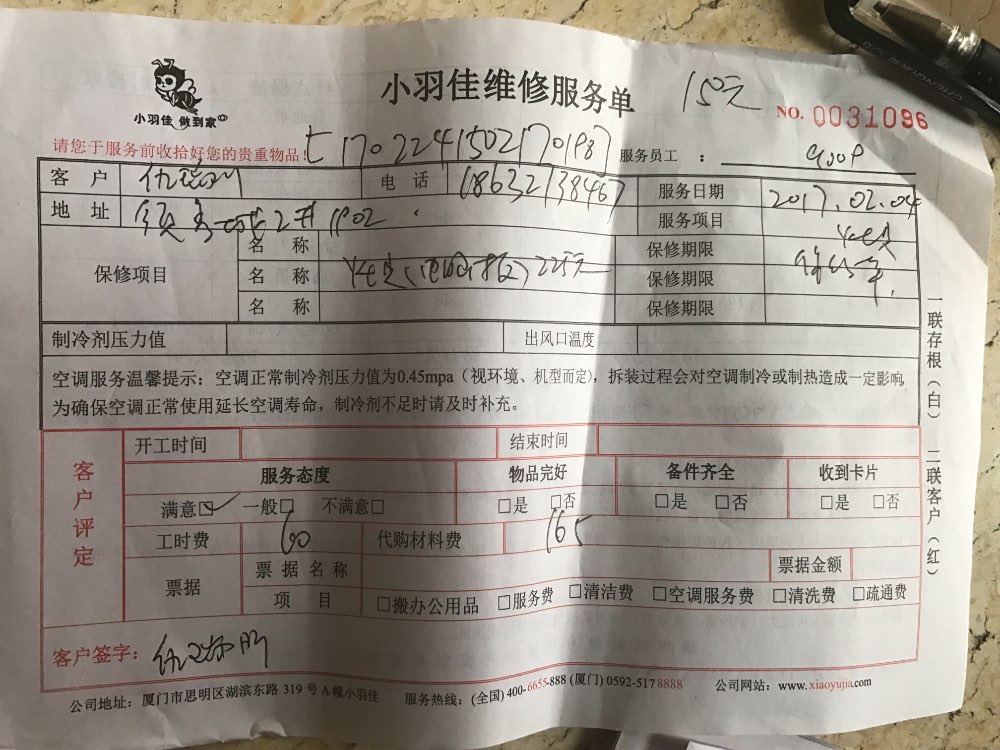 小羽佳维修服务单 150元
小羽佳 做到家
NO. 0031096
请您于服务前收拾好您的贵重物品! t17022415021701987 服务员工 :
客 户 电 话 18632138467 服务日期 2017.02.04
地 址 2# 1902 服务项目
保修项目 名 称 保修期限
名 称 225元 保修期限
名 称 保修期限
制冷剂压力值 出风口温度
空调服务温馨提示：空调正常制冷剂压力值为0.45mpa（视环境、机型而定），拆装过程会对空调制冷或制热造成一定影响，
为确保空调正常使用延长空调寿命，制冷剂不足时请及时补充。
客户评定 开工时间 结束时间
服务态度 物品完好 备件齐全 收到卡片
满意☑ 一般□ 不满意□ □是 □否 □是 □否 □是 □否
工时费 60 代购材料费 165
票据 票据名称 票据金额
项 目 □搬办公用品 □服务费 □清洁费 □空调服务费 □清洗费 □疏通费
客户签字：
公司地址：厦门市思明区湖滨东路 319 号 A 幢小羽佳 服务热线：(全国) 400-6655-888 (厦门) 0592-517 8888 公司网站：www.xiaoyujia.com
一联存根（白） 二联客户（红）